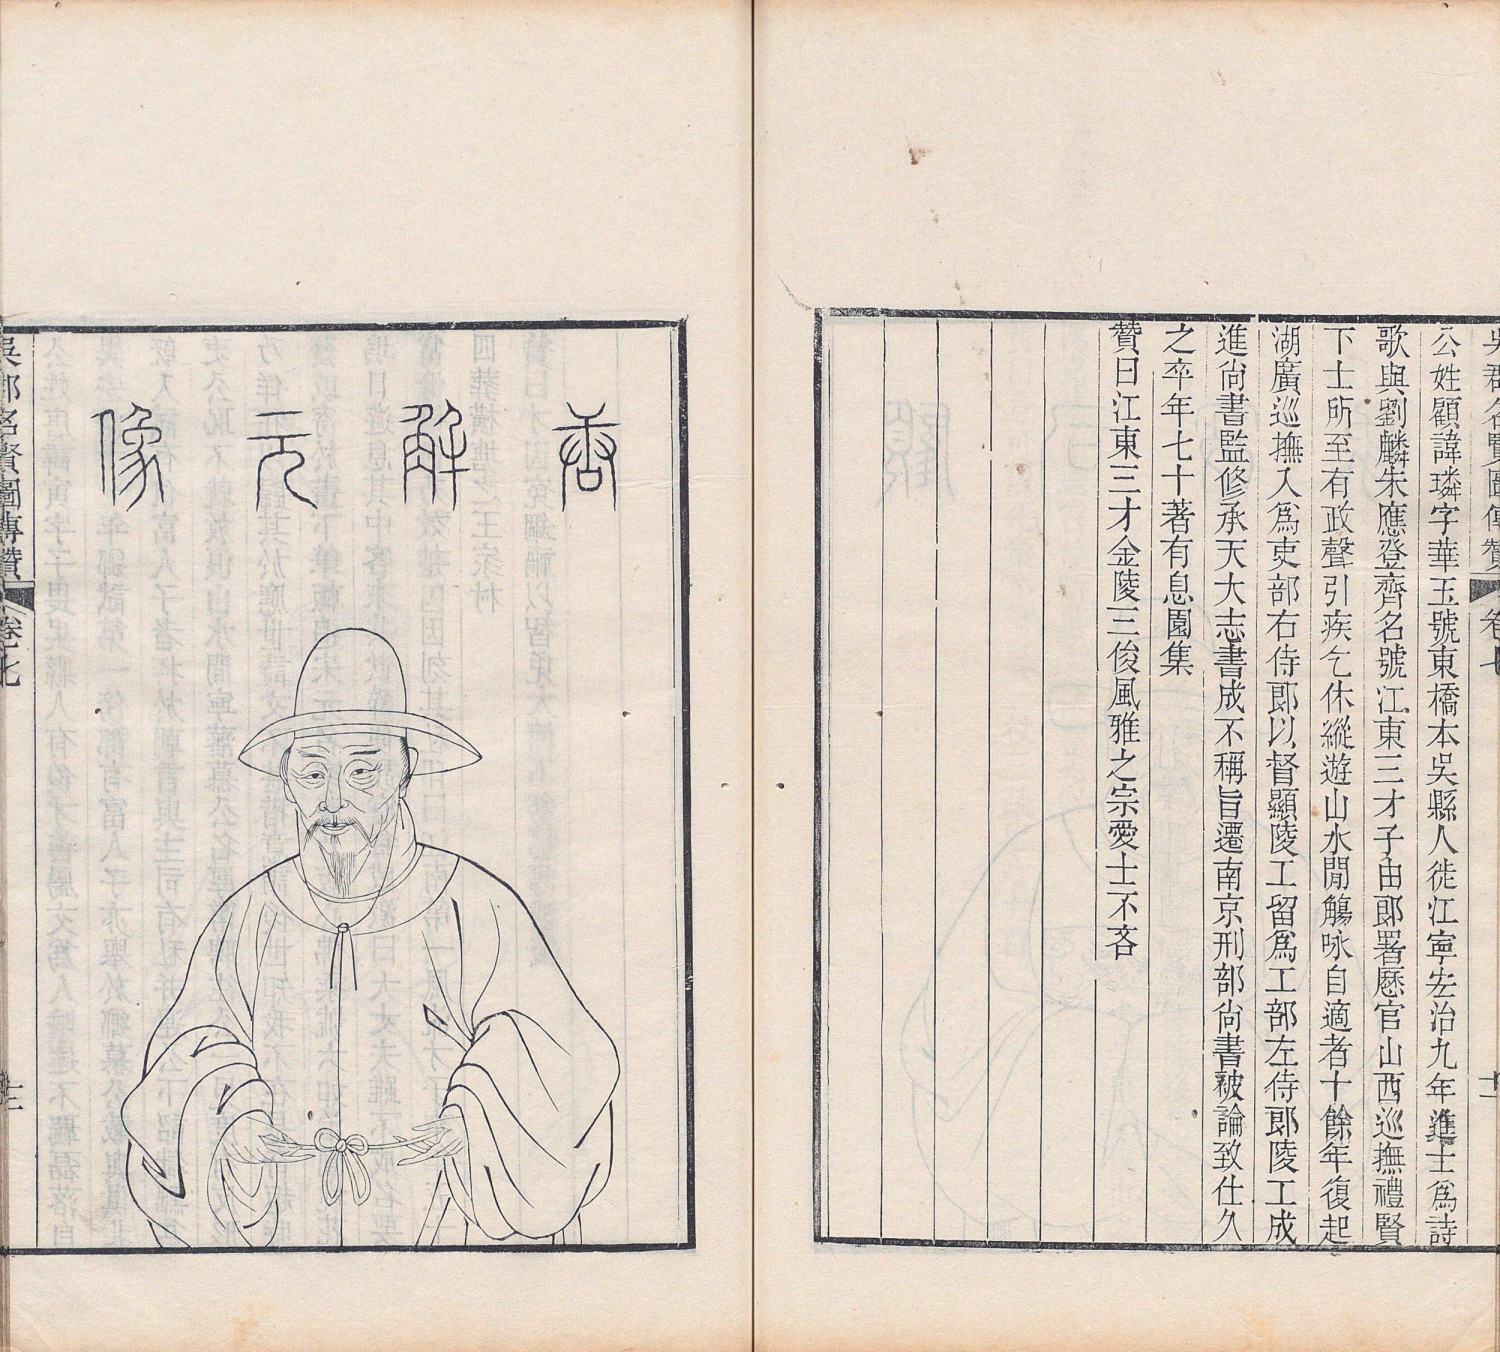 吳郡名賢圖傳贊 卷七 十二
公姓顧諱璘字華玉號東橋本吳縣人徙江寧宏治九年進士爲詩
歌與劉麟朱應登齊名號江東三才子由郎署歷官山西巡撫禮賢
下士所至有政聲引疾乞休縱遊山水閒觴咏自適者十餘年復起
湖廣巡撫入爲吏部右侍郎以督顯陵工留爲工部左侍郎陵工成
進尙書監修承天大志書成不稱旨遷南京刑部尙書被論致仕久
之卒年七十著有息園集
贊曰江東三才金陵三俊風雅之宗愛士不吝
唐解元像
吳郡名賢圖傳贊 卷七 十三